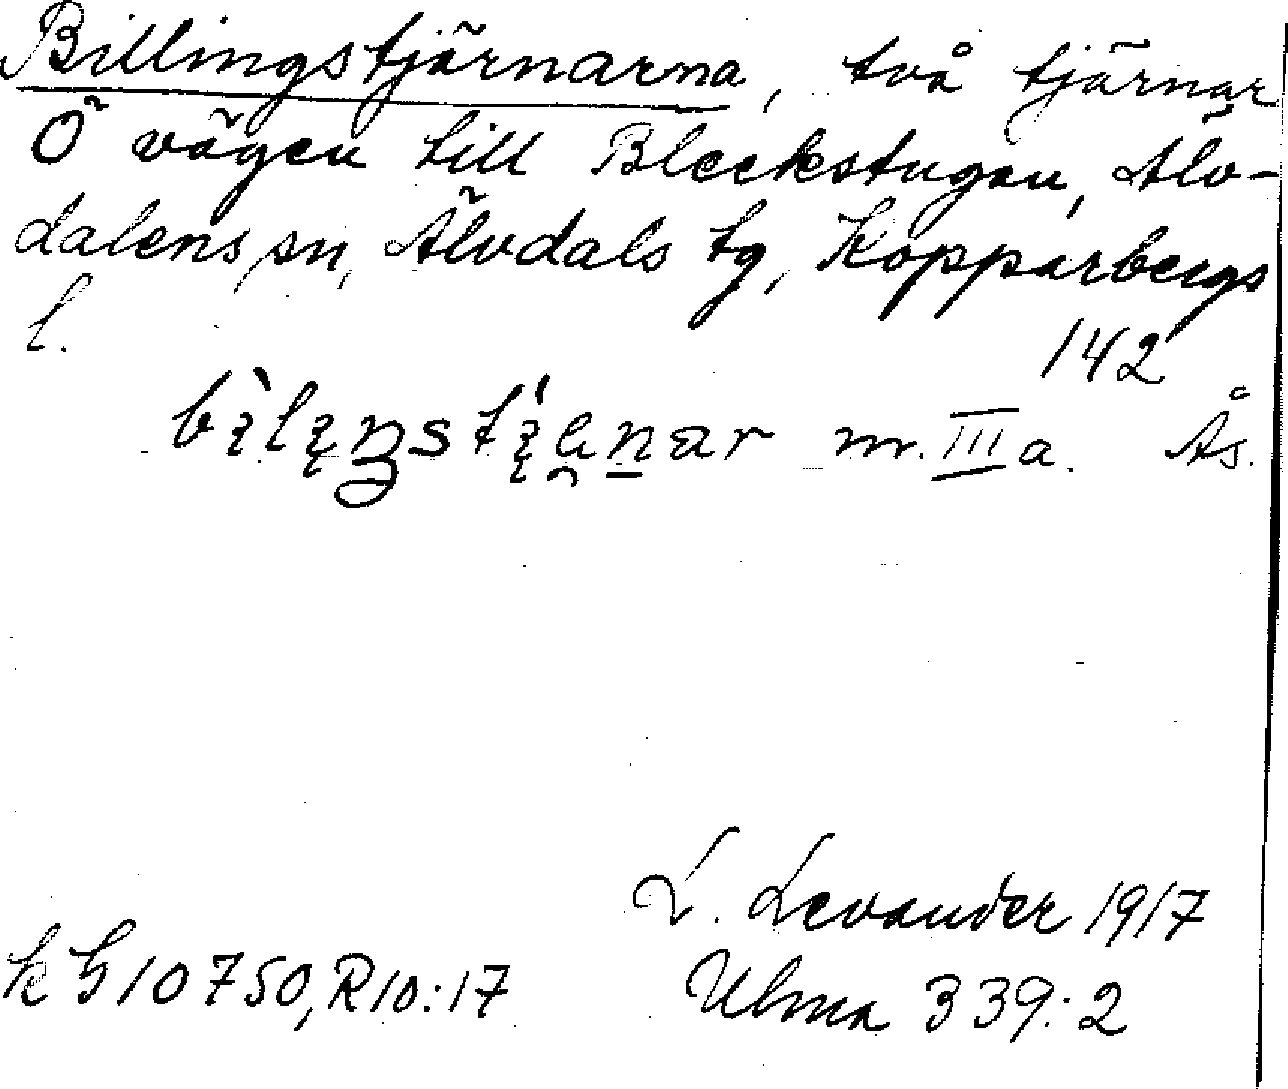 Billingstjärnarna, två tjärnar
Ö vägen till Bleckstugan, Älv-
dalens sn, Älvdals tg, Kopparbergs
l.
142
m. III a. Ås.
L. Levander 1917
k G 10750, R10:17 Ulma 339:2